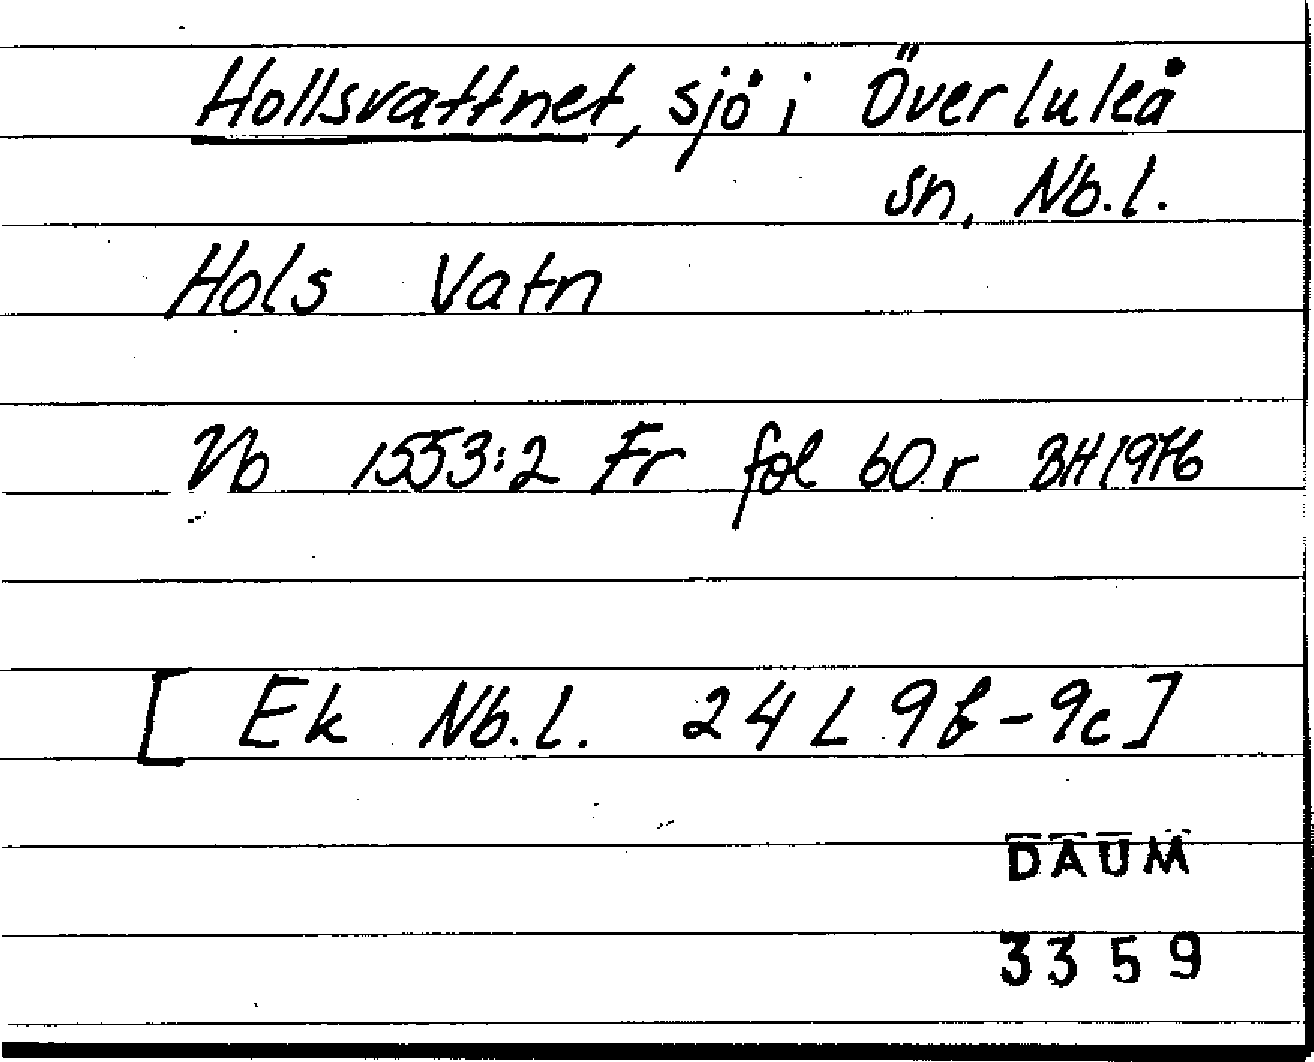 Hollsvattnet, sjö i Överluleå
sn, Nb.l.
Hols Vatn
Vb 1553:2 Fr fol 60 r BH 1976
[ Ek Nb.l. 24 L 9b - 9c ]
DAUM
3359